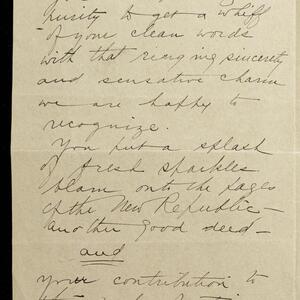 to get a whiff
of your clean words
with that ringing sincerety
and sensative charm
we are happy to
recognize.
You put a splash
of fresh sparkles
onto the pages
of the New Republic —
another good deed —
and
your contribution to